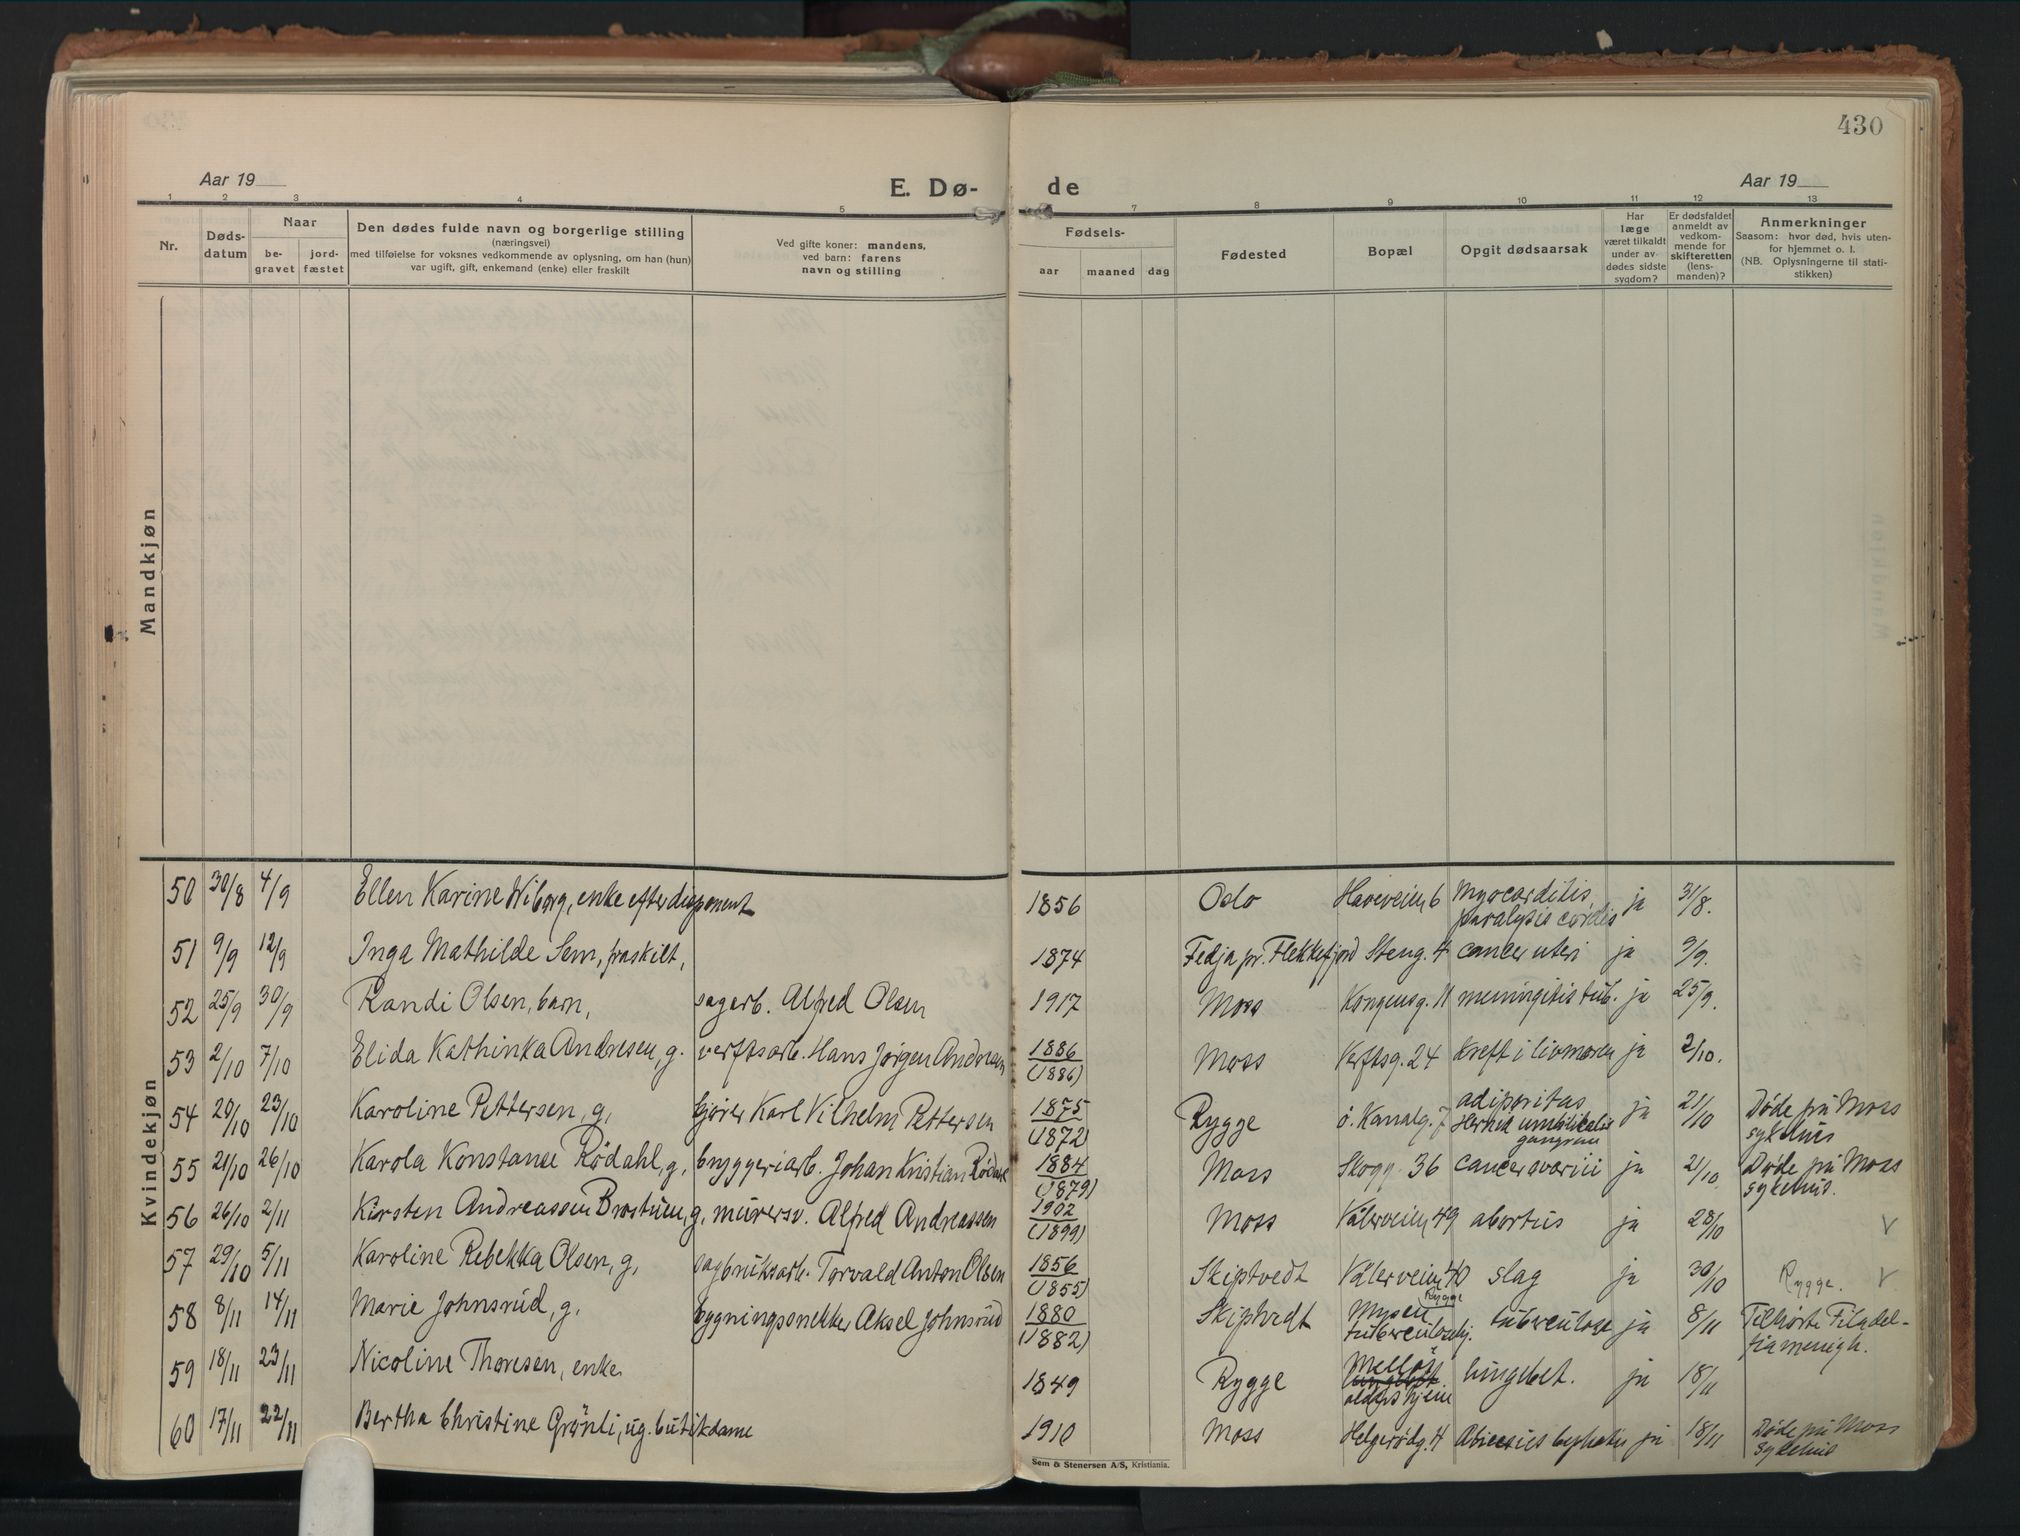 430
Aar 19
E. Dø-
de
Aar 19
1 2 3 4 5 7 8 9 10 11 12 13
Nr.
Døds-
datum
Naar
be-
gravet
jord-
fæstet
Den dødes fulde navn og borgerlige stilling
(næringsvei)
med tilføielse for voksnes vedkommende av oplysning, om han (hun)
var ugift, gift, enkemand (enke) eller fraskilt
Ved gifte koner: mandens,
ved barn: farens
navn og stilling
Fødsels-
aar
maaned
dag
Fødested
Bopæl
Opgit dødsaarsak
Har
læge
været tilkaldt
under av-
dødes sidste
sygdom?
Er dødsfaldet
anmeldt av
vedkom-
mende for
skifteretten
(lens-
manden)?
Anmerkninger
Saasom: hvor død, hvis uten-
for hjemmet o. l.
(NB. Oplysningerne til stati-
stikken)
Mandkjøn
Kvindekjøn
50 30/8 4/9 Ellen Karine Wiborg, enke efter disponent 1856 Oslo Haveveien 6 Myocarditis, paralysis cordis ja 31/8.
51 9/9 12/9 Inga Mathilde Sem, fraskilt, 1874 Fedja pr. Flekkefjord Steng. 4 cancer uteri ja 9/9.
52 25/9 30/9 Randi Olsen, barn, sagarb. Alfred Olsen 1917 Moss Kongensg. 11 meningitis tub. ja 25/9.
53 2/10 7/10 Elida Kathinka Andresen, g. verftsarb. Hans Jørgen Andresen 1886 (1886) Moss Verftsg. 24 kreft i livmoren ja 2/10.
54 20/10 23/10 Karoline Pettersen, g, kjører Karl Vilhelm Pettersen 1875 (1872) Rygge ö. Kanalg. 7 adipositas Hernia umbilicalis gangren ja 21/10 Døde på Moss sykehus
55 21/10 26/10 Karola Konstanse Rödahl, g, bryggeriarb. Johan Kristian Rödahl 1884 (1879) Moss Skogg. 36 cancer ovarii ja 21/10. Døde på Moss sykehus.
56 26/10 2/11 Kirsten Andreassen Brostuen, g, murersv. Alfred Andreassen 1902 (1899) Moss Vålerveien 49 abortus ja 28/10 V
57 29/10 5/11 Karoline Rebekka Olsen, g, sagbruksarb. Torvald Anton Olsen 1856 (1855) Skiptvedt Vålerveien 40 Rygge slag ja 30/10 Rygge. V
58 8/11 14/11 Marie Johnsrud, g. bygningssnekker Aksel Johnsrud 1880 (1882) Skiptvedt Mysen tuberculosehj. tuberculose ja 8/11 Tilhørte Filadelfiamenigh.
59 18/11 23/11 Nicoline Thoresen, enke 1849 Rygge Melløs aldershjem lungebet. ja 18/11
60 17/11 22/11 Bertha Christine Grønli, ug. butikdame 1910 Moss Helgerødg. 4 ja 18/11 Døde på Moss sykehus
Sem & Stenersen A/S, Kristiania.